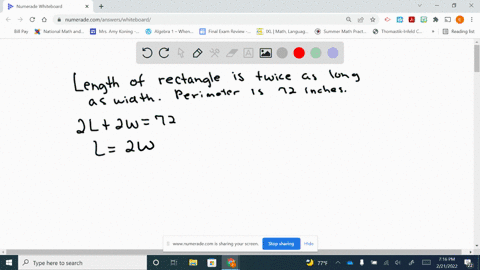 Numerade Whiteboard
numerade.com/answers/whiteboard/
Bill Pay
National Math and...
Mrs. Amy Koning -...
Algebra 1 - Whenat...
Final Exam Review -...
IXL | Math, Languag...
Summer Math Pract...
Thomastik-Infeld C...
Reading list
Length of rectangle is twice as long
as width. Perimeter is 72 inches.
2L+2W=72
L= 2W
www.numerade.com is sharing your screen.
Stop sharing
Hide
Type here to search
77°F
7:16 PM
2/21/2022